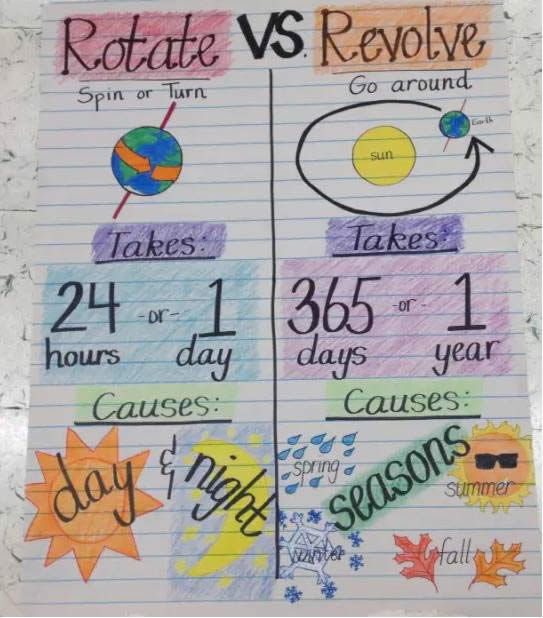 Rotate VS. Revolve
Spin or Turn
Go around
Earth
sun
Takes:
24 -or- 1
hours day
Causes:
day & night
Takes:
365 -or- 1
days year
Causes:
seasons
spring
summer
winter
fall